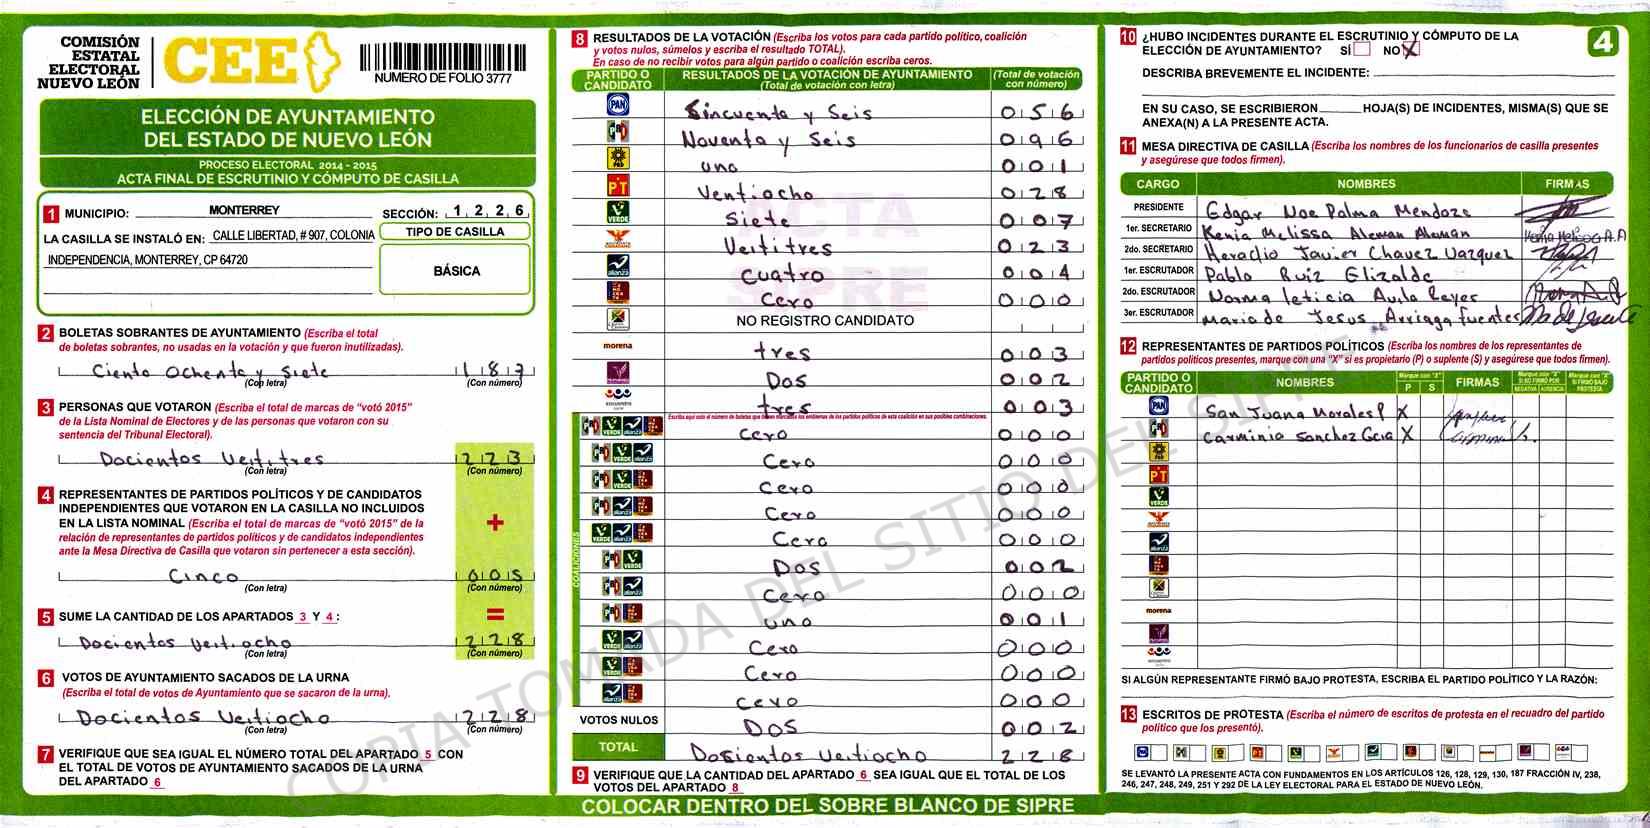 COMISIÓN
ESTATAL
ELECTORAL
NUEVO LEÓN
CEE
NUMERO DE FOLIO 3777
ELECCIÓN DE AYUNTAMIENTO
DEL ESTADO DE NUEVO LEÓN
PROCESO ELECTORAL 2014 - 2015
ACTA FINAL DE ESCRUTINIO Y CÓMPUTO DE CASILLA
1 MUNICIPIO: MONTERREY SECCIÓN: 1 2 2 6
LA CASILLA SE INSTALÓ EN: CALLE LIBERTAD, # 907, COLONIA
INDEPENDENCIA, MONTERREY, CP 64720
TIPO DE CASILLA
BÁSICA
2 BOLETAS SOBRANTES DE AYUNTAMIENTO (Escriba el total
de boletas sobrantes, no usadas en la votación y que fueron inutilizadas).
Ciento Ochenta y Siete 1 8 7
(Con letra) (Con número)
3 PERSONAS QUE VOTARON (Escriba el total de marcas de “votó 2015”
de la Lista Nominal de Electores y de las personas que votaron con su
sentencia del Tribunal Electoral).
Docientos Veititres 2 2 3
(Con letra) (Con número)
4 REPRESENTANTES DE PARTIDOS POLÍTICOS Y DE CANDIDATOS
INDEPENDIENTES QUE VOTARON EN LA CASILLA NO INCLUIDOS
EN LA LISTA NOMINAL (Escriba el total de marcas de “votó 2015” de la
relación de representantes de partidos políticos y de candidatos independientes
ante la Mesa Directiva de Casilla que votaron sin pertenecer a esta sección).
+
Cinco 0 0 5
(Con letra) (Con número)
5 SUME LA CANTIDAD DE LOS APARTADOS 3 Y 4 : =
Docientos Veitiocho 2 2 8
(Con letra) (Con número)
6 VOTOS DE AYUNTAMIENTO SACADOS DE LA URNA
(Escriba el total de votos de Ayuntamiento que se sacaron de la urna).
Docientos Veitiocho 2 2 8
(Con letra) (Con número)
7 VERIFIQUE QUE SEA IGUAL EL NÚMERO TOTAL DEL APARTADO 5 CON
EL TOTAL DE VOTOS DE AYUNTAMIENTO SACADOS DE LA URNA
DEL APARTADO 6
8 RESULTADOS DE LA VOTACIÓN (Escriba los votos para cada partido político, coalición
y votos nulos, súmelos y escriba el resultado TOTAL).
En caso de no recibir votos para algún partido o coalición escriba ceros.
PARTIDO O CANDIDATO RESULTADOS DE LA VOTACIÓN DE AYUNTAMIENTO (Total de votación con letra) (Total de votación con número)
PAN Sincuenta y Seis 0 5 6
PRI Noventa y Seis 0 9 6
PRD uno 0 0 1
PT Ventiocho 0 2 8
VERDE Siete 0 0 7
Veititres 0 2 3
alianza Cuatro 0 0 4
Cero 0 0 0
NO REGISTRO CANDIDATO
morena tres 0 0 3
Dos 0 0 2
tres 0 0 3
Escriba aquí solo el número de boletas que tienen marcados los emblemas de los partidos políticos de esta coalición en sus posibles combinaciones.
COALICIONES
Cero 0 0 0
Cero 0 0 0
Cero 0 0 0
Cero 0 0 0
Cero 0 0 0
Dos 0 0 2
Cero 0 0 0
uno 0 0 1
Cero 0 0 0
Cero 0 0 0
Cero 0 0 0
VOTOS NULOS Dos 0 0 2
TOTAL Dosientos Veitiocho 2 2 8
ACTA
SIPRE
9 VERIFIQUE QUE LA CANTIDAD DEL APARTADO 6 SEA IGUAL QUE EL TOTAL DE LOS
VOTOS DEL APARTADO 8
COLOCAR DENTRO DEL SOBRE BLANCO DE SIPRE
10 ¿HUBO INCIDENTES DURANTE EL ESCRUTINIO Y CÓMPUTO DE LA
ELECCIÓN DE AYUNTAMIENTO? SÍ NO X
4
DESCRIBA BREVEMENTE EL INCIDENTE:
EN SU CASO, SE ESCRIBIERON HOJA(S) DE INCIDENTES, MISMA(S) QUE SE
ANEXA(N) A LA PRESENTE ACTA.
11 MESA DIRECTIVA DE CASILLA (Escriba los nombres de los funcionarios de casilla presentes
y asegúrese que todos firmen).
CARGO NOMBRES FIRMAS
PRESIDENTE Edgar Noe Palma Mendoza
1er. SECRETARIO Kenia Melissa Aleman Aleman Kenia Melissa A.A
2do. SECRETARIO Heraclio Javier Chavez Vazquez
1er. ESCRUTADOR Pablo Ruiz Elizalde
2do. ESCRUTADOR Norma leticia Avila Reyes
3er. ESCRUTADOR Maria de Jesus Arriaga Fuentes
12 REPRESENTANTES DE PARTIDOS POLÍTICOS (Escriba los nombres de los representantes de
partidos políticos presentes, marque con una “X” si es propietario (P) o suplente (S) y asegúrese que todos firmen).
PARTIDO O CANDIDATO NOMBRES Marque con "X" P S FIRMAS Marque con "X" SI NO FIRMÓ POR NEGATIVA AUSENCIA Marque con "X" SI FIRMÓ BAJO PROTESTA
PAN San Juana Morales P X
PRI Carminia Sanchez Gcia X
PRD
PT
VERDE
alianza
morena
SI ALGÚN REPRESENTANTE FIRMÓ BAJO PROTESTA, ESCRIBA EL PARTIDO POLÍTICO Y LA RAZÓN:
13 ESCRITOS DE PROTESTA (Escriba el número de escritos de protesta en el recuadro del partido
político que los presentó).
SE LEVANTÓ LA PRESENTE ACTA CON FUNDAMENTOS EN LOS ARTÍCULOS 126, 128, 129, 130, 187 FRACCIÓN IV, 238,
246, 247, 248, 249, 251 Y 292 DE LA LEY ELECTORAL PARA EL ESTADO DE NUEVO LEÓN.
COPIA TOMADA DEL SITIO DEL SIPRE